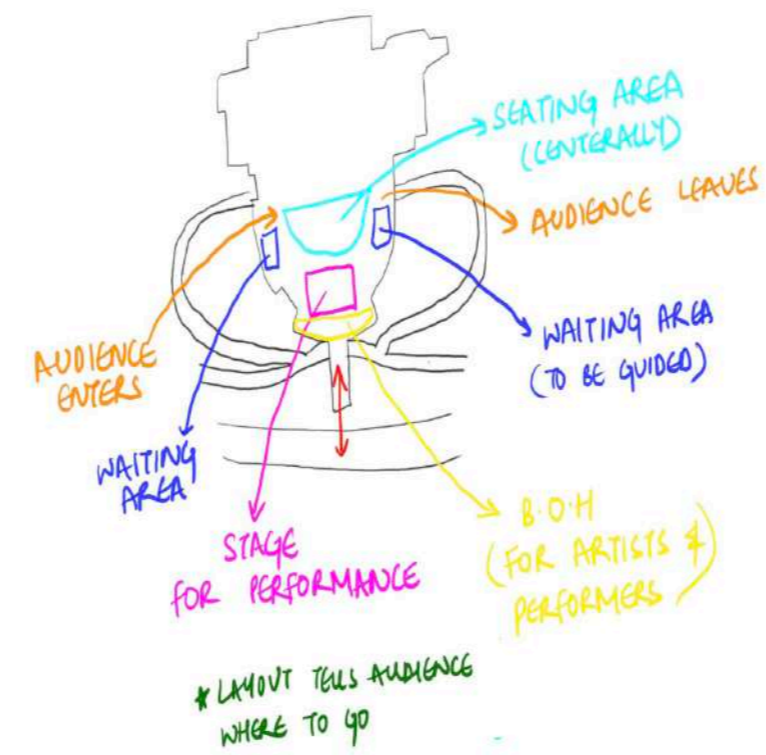 SEATING AREA
(CENTERALLY)
AUDIENCE LEAVES
WAITING AREA
(TO BE GUIDED)
AUDIENCE
ENTERS
WAITING
AREA
STAGE
FOR PERFORMANCE
B.O.H
(FOR ARTISTS &
PERFORMERS)
* LAYOUT TELLS AUDIENCE
WHERE TO GO